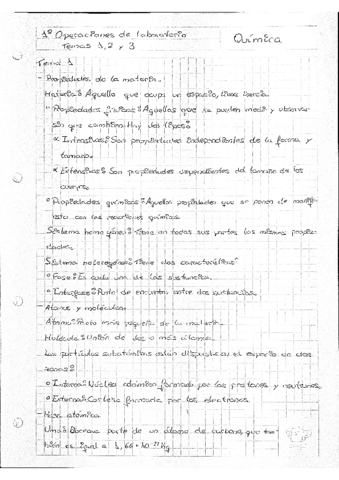 1º Operaciones de laboratorio
Química
Temas 1, 2 y 3
Tema 1
- Propiedades de la materia.
Materia: Aquello que ocupa un espacio, tiene inercia.
Propiedades físicas: Aquellas que se pueden medir y observar
sin que cambien. Hay dos tipos:
Intensivas: Son propiedades independientes de la forma y
tamaño.
Extensivas: Son propiedades dependientes del tamaño de los
cuerpos.
Propiedades químicas: Aquellas propiedades que se ponen de manifi-
esto con las reacciones químicas.
Sistema homogéneo: Tiene en todas sus partes las mismas propie-
dades.
Sistema heterogéneo: Tiene dos características:
Fase: Es cada una de las sustancias.
Interfase: Punto de encuentro entre dos sustancias.
- Átomos y moléculas.
Átomo: Parte más pequeña de la materia.
Molécula: Unión de dos o más átomos.
Las partículas subatómicas están dispuestas en dos
zonas:
Interna: Núcleo atómico formado por los protones y neutrones.
Externa: Corteza formada por los electrones.
- Masa atómica
Uma: Doceava parte de un átomo de carbono, que
es igual a 1,66·10⁻²⁷ Kg